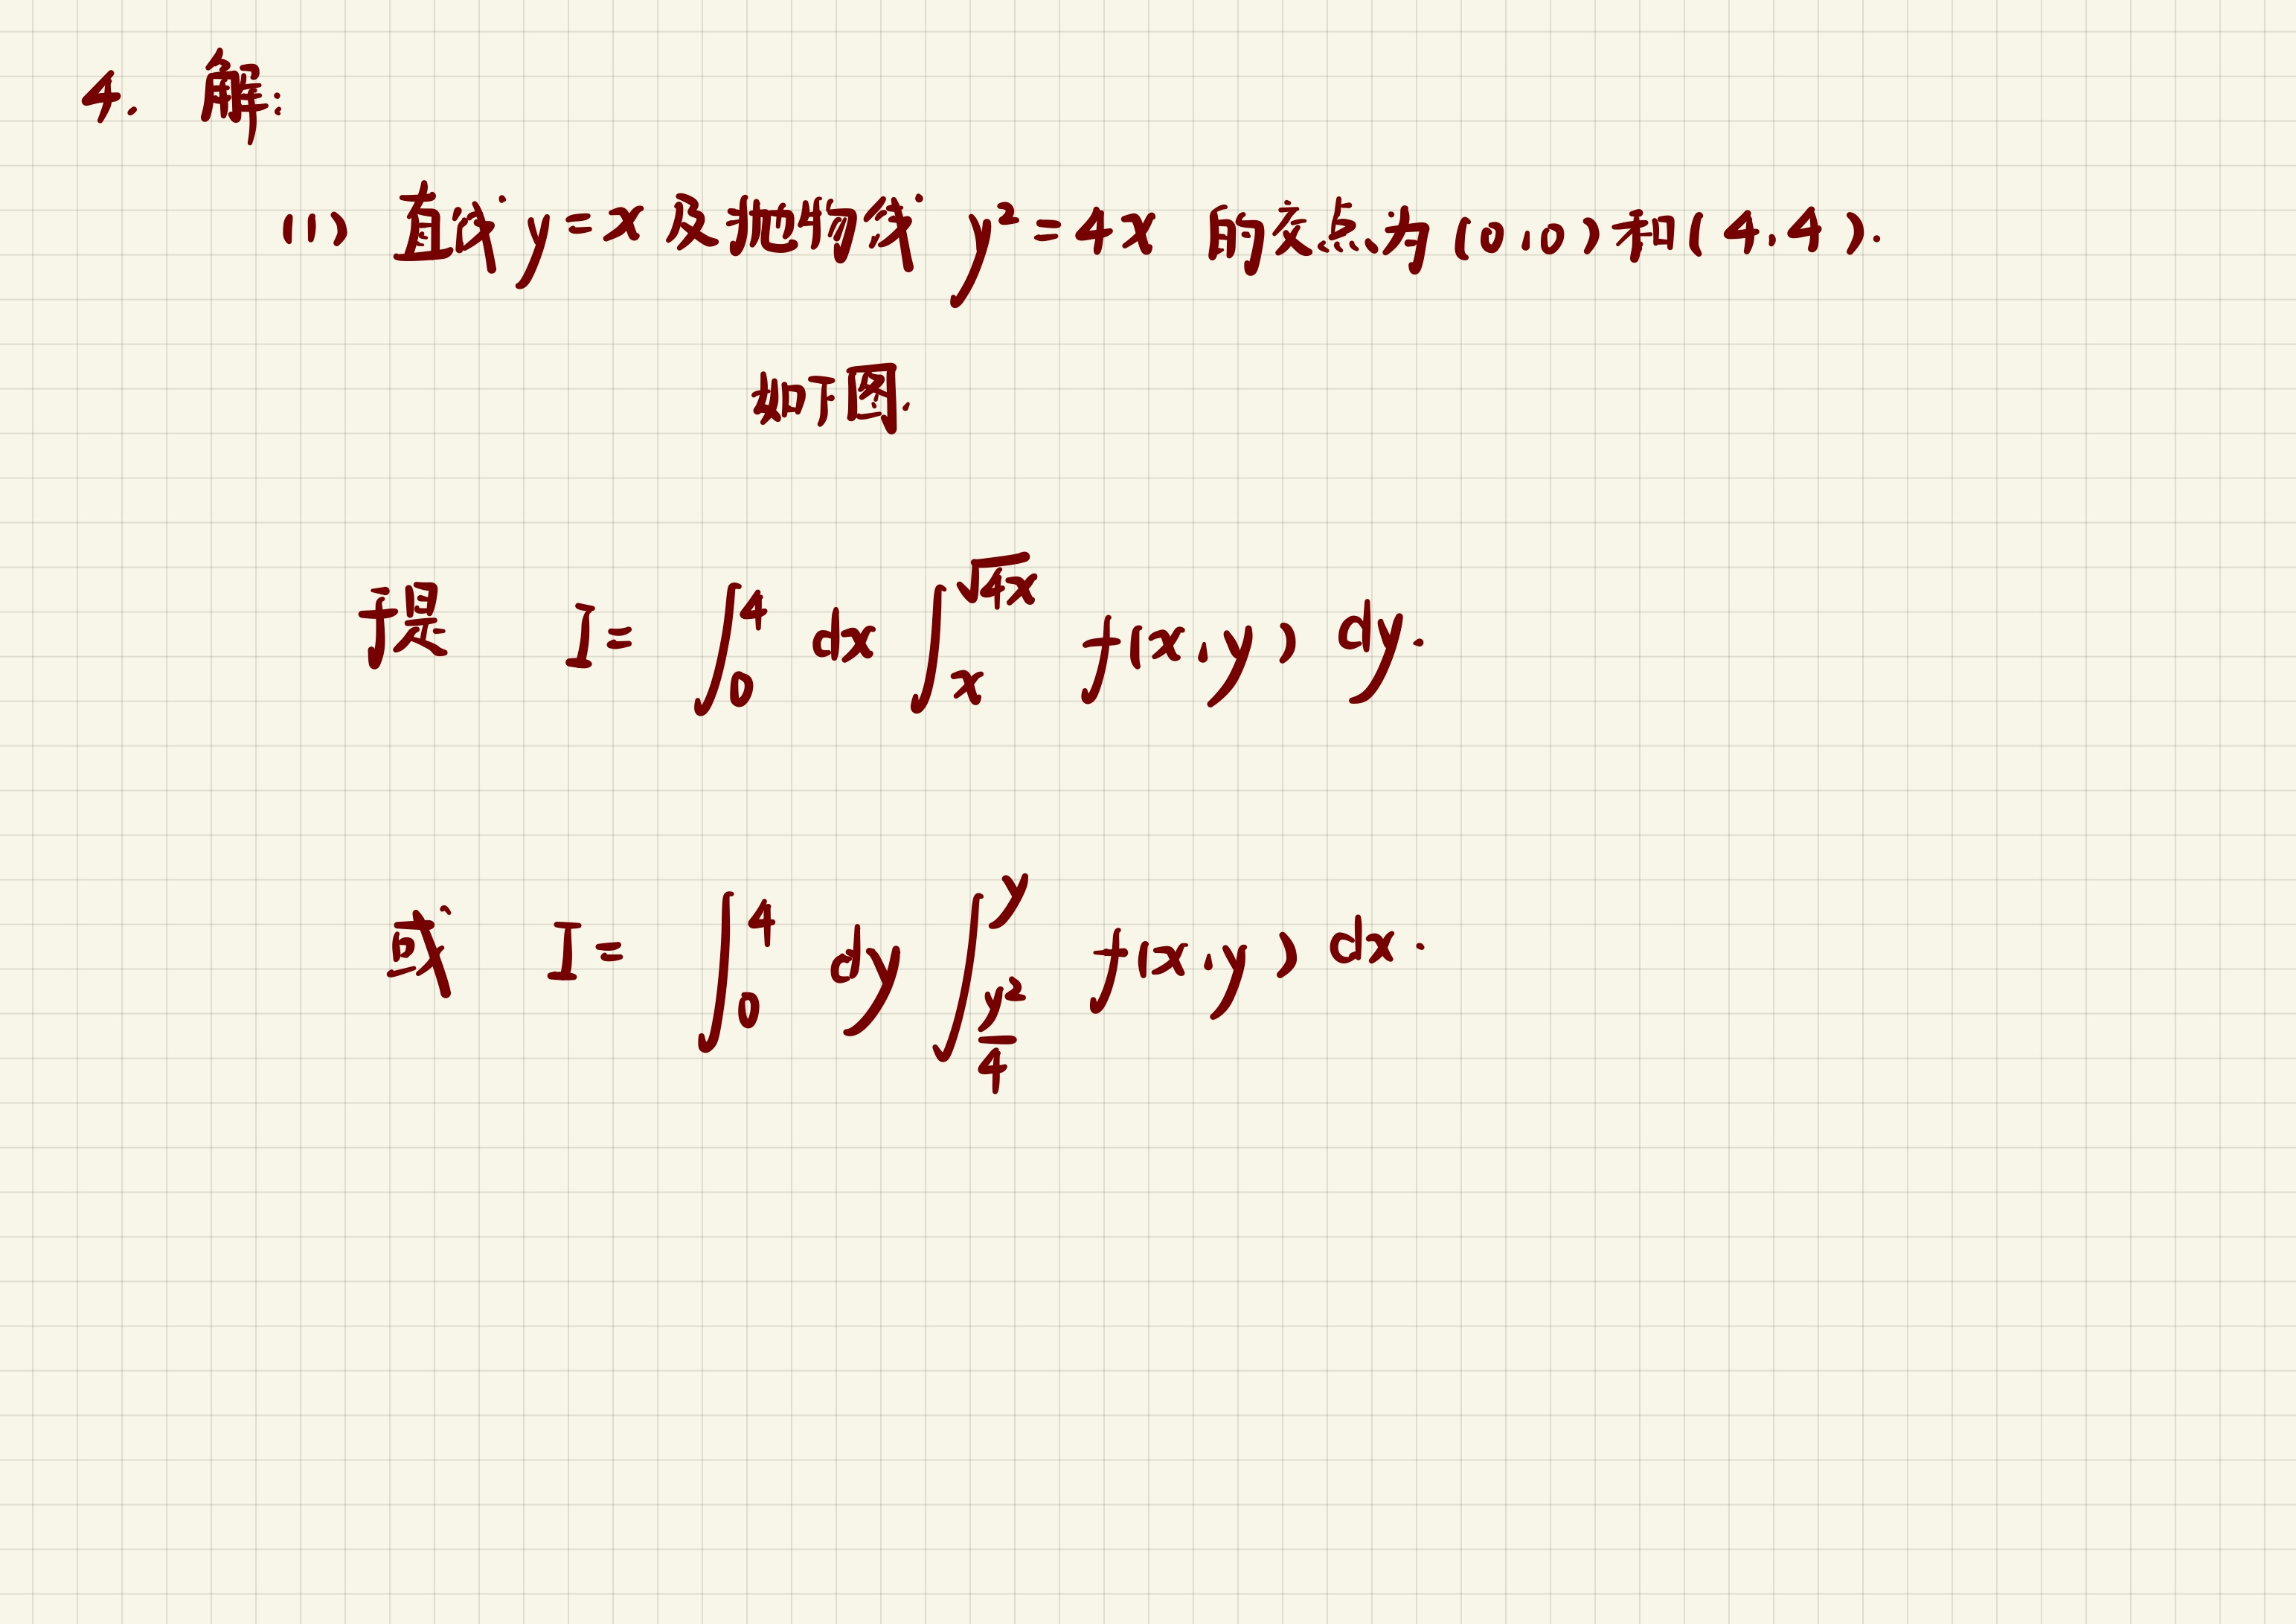 4. 解:
(1) 直线 y=x 及抛物线 y²=4x 的交点为(0,0)和(4,4).
如下图.
于是 I= ∫₀⁴ dx ∫ₓ^√(4x) f(x,y) dy.
或 I= ∫₀⁴ dy ∫_(y²/4)^y f(x,y) dx.